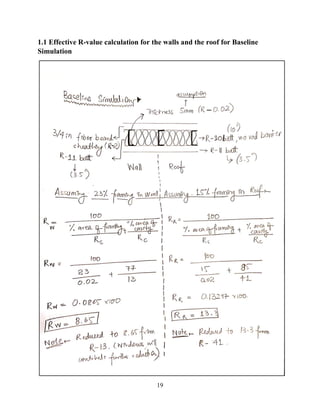 1.1 Effective R-value calculation for the walls and the roof for Baseline
Simulation
Baseline Simulation
assumption
thickness 5mm (R-0.02)
3/4 in fiber board
sheathing (R-2)
R-11 batt
(3.5")
Wall
Roof
(10")
R-30 batt, no rad barrier
R-11 batt
(3.5")
Assuming 23% framing in Wall
Assuming 15% framing in Roof
Rw = 100
% area of framing + % area of cavity
Rs Rc
RR = 100
% area of framing + % area of cavity
Rs Rc
Rw = 100
23 + 77
0.02 13
RR = 100
15 + 85
0.02 41
Rw = 0.0865 x100
RR = 0.1327 x100
Rw = 8.65
RR = 13.3
Note - Reduced to 8.65 from
R-13. (Windows will
contribute further reduction)
Note - Reduced to 13.3 from
R-41.
19